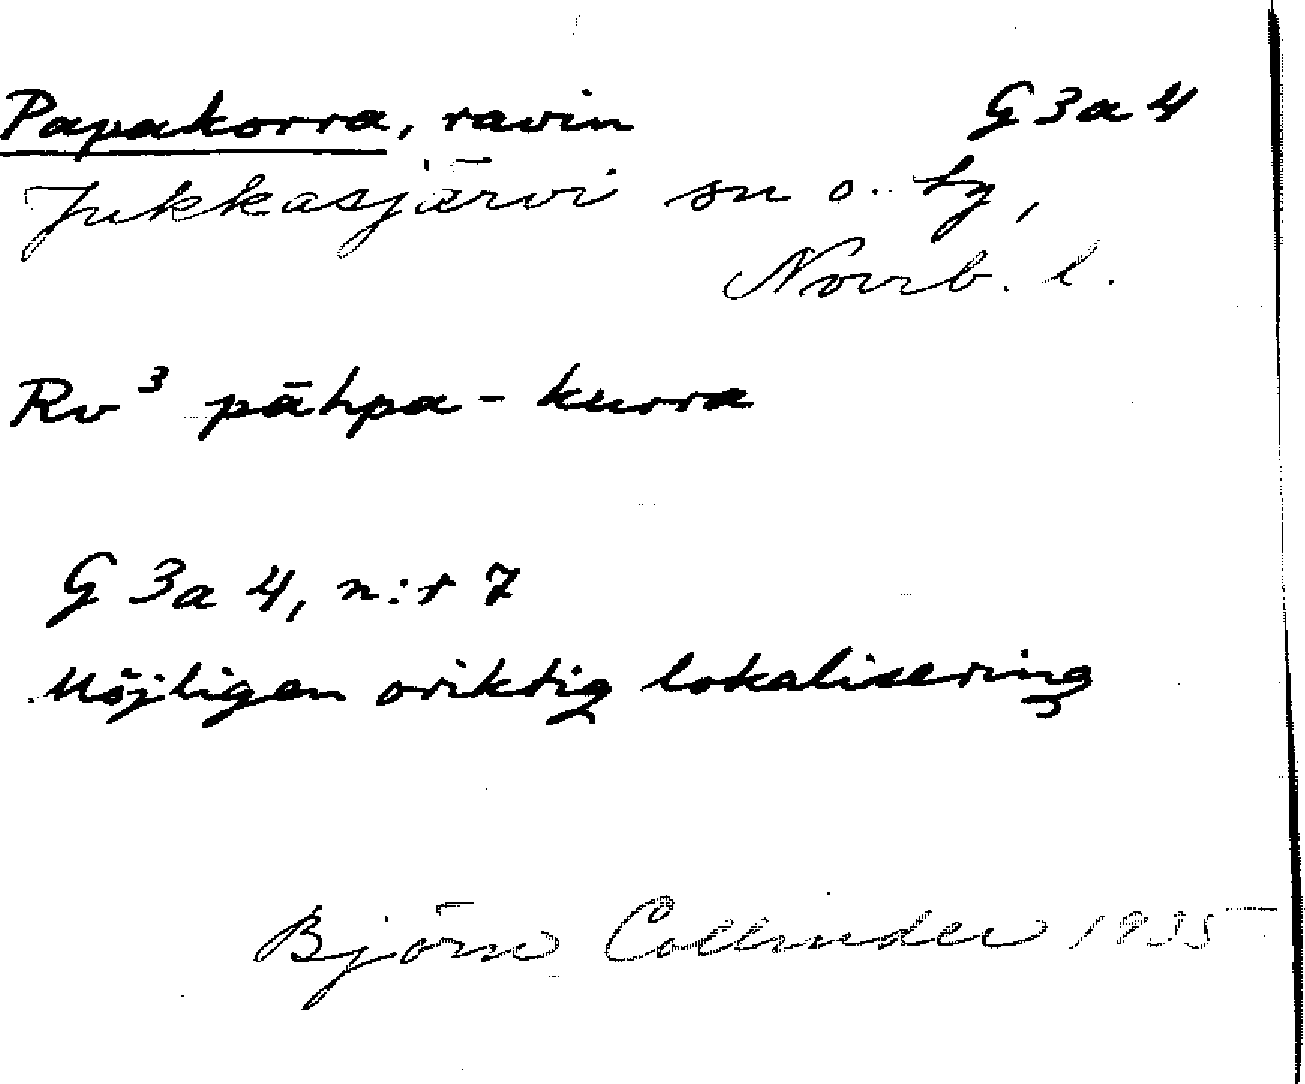 Papakorra, ravin G3a4
Jukkasjärvi sn o. tg,
Norrb. l.
Rv³ pāhpa-kurra
G 3a 4, n:r 7
Möjligen oriktig lokalisering
Björn Collinder 1935